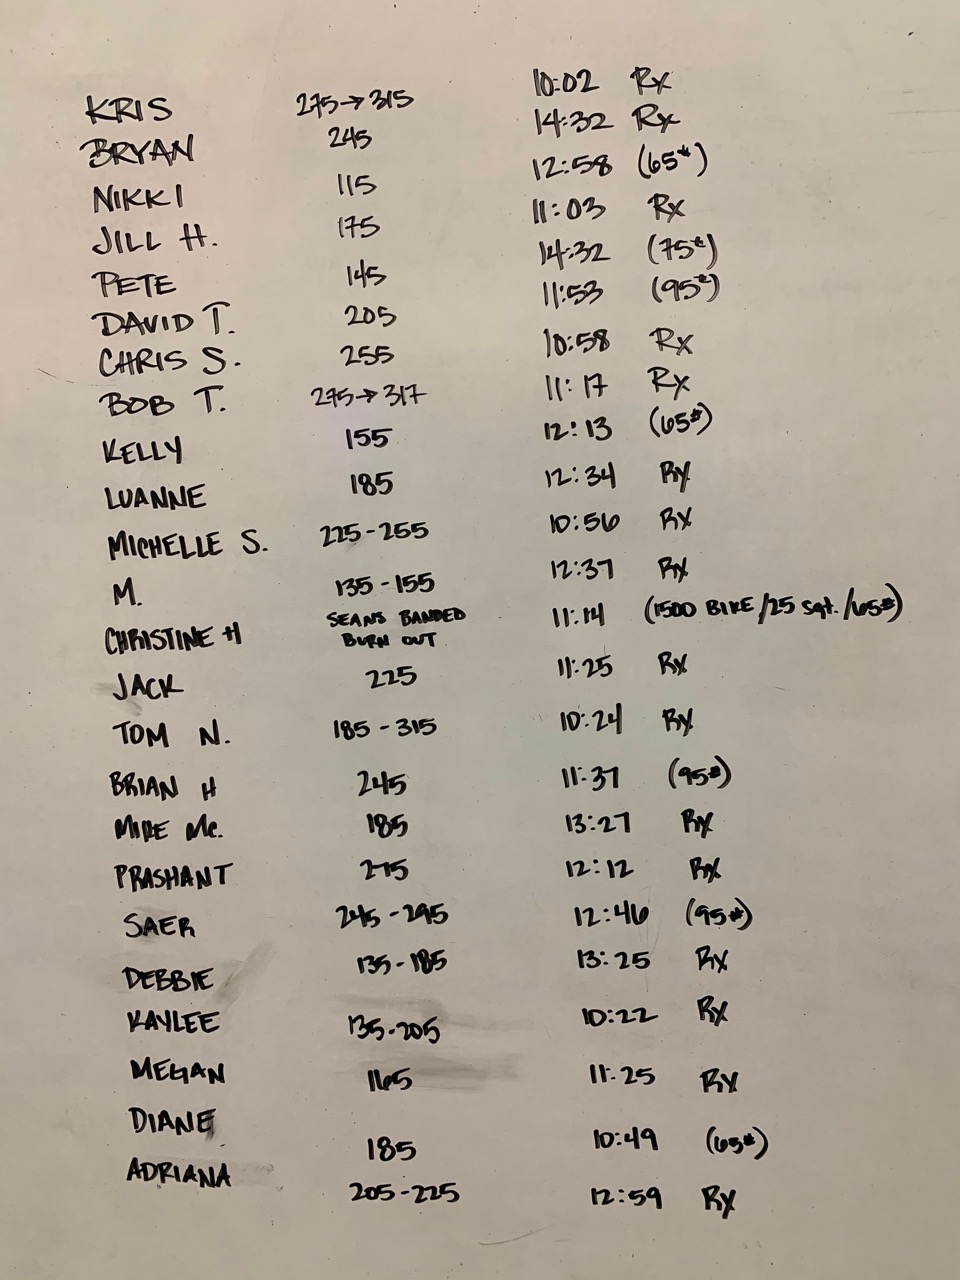 KRIS 275→315 10:02 Rx
BRYAN 245 14:32 Rx
NIKKI 115 12:58 (65#)
JILL H. 175 11:03 Rx
PETE 145 14:32 (75#)
DAVID T. 205 11:53 (95#)
CHRIS S. 255 10:58 Rx
BOB T. 275→317 11:17 Rx
KELLY 155 12:13 (65#)
LUANNE 185 12:34 Rx
MICHELLE S. 225-255 10:56 Rx
M. 135-155 12:37 Rx
CHRISTINE H SEANS BANDED BURN OUT 11:14 (1500 BIKE/25 SQT./65#)
JACK 225 11:25 Rx
TOM N. 185-315 10:24 Rx
BRIAN H 245 11:37 (95#)
MIKE Mc. 185 13:27 Rx
PRASHANT 275 12:12 Rx
SAER 245-295 12:46 (95#)
DEBBIE 135-185 13:25 Rx
KAYLEE 135-205 10:22 Rx
MEGAN 165 11:25 Rx
DIANE 185 10:49 (65#)
ADRIANA 205-225 12:59 Rx